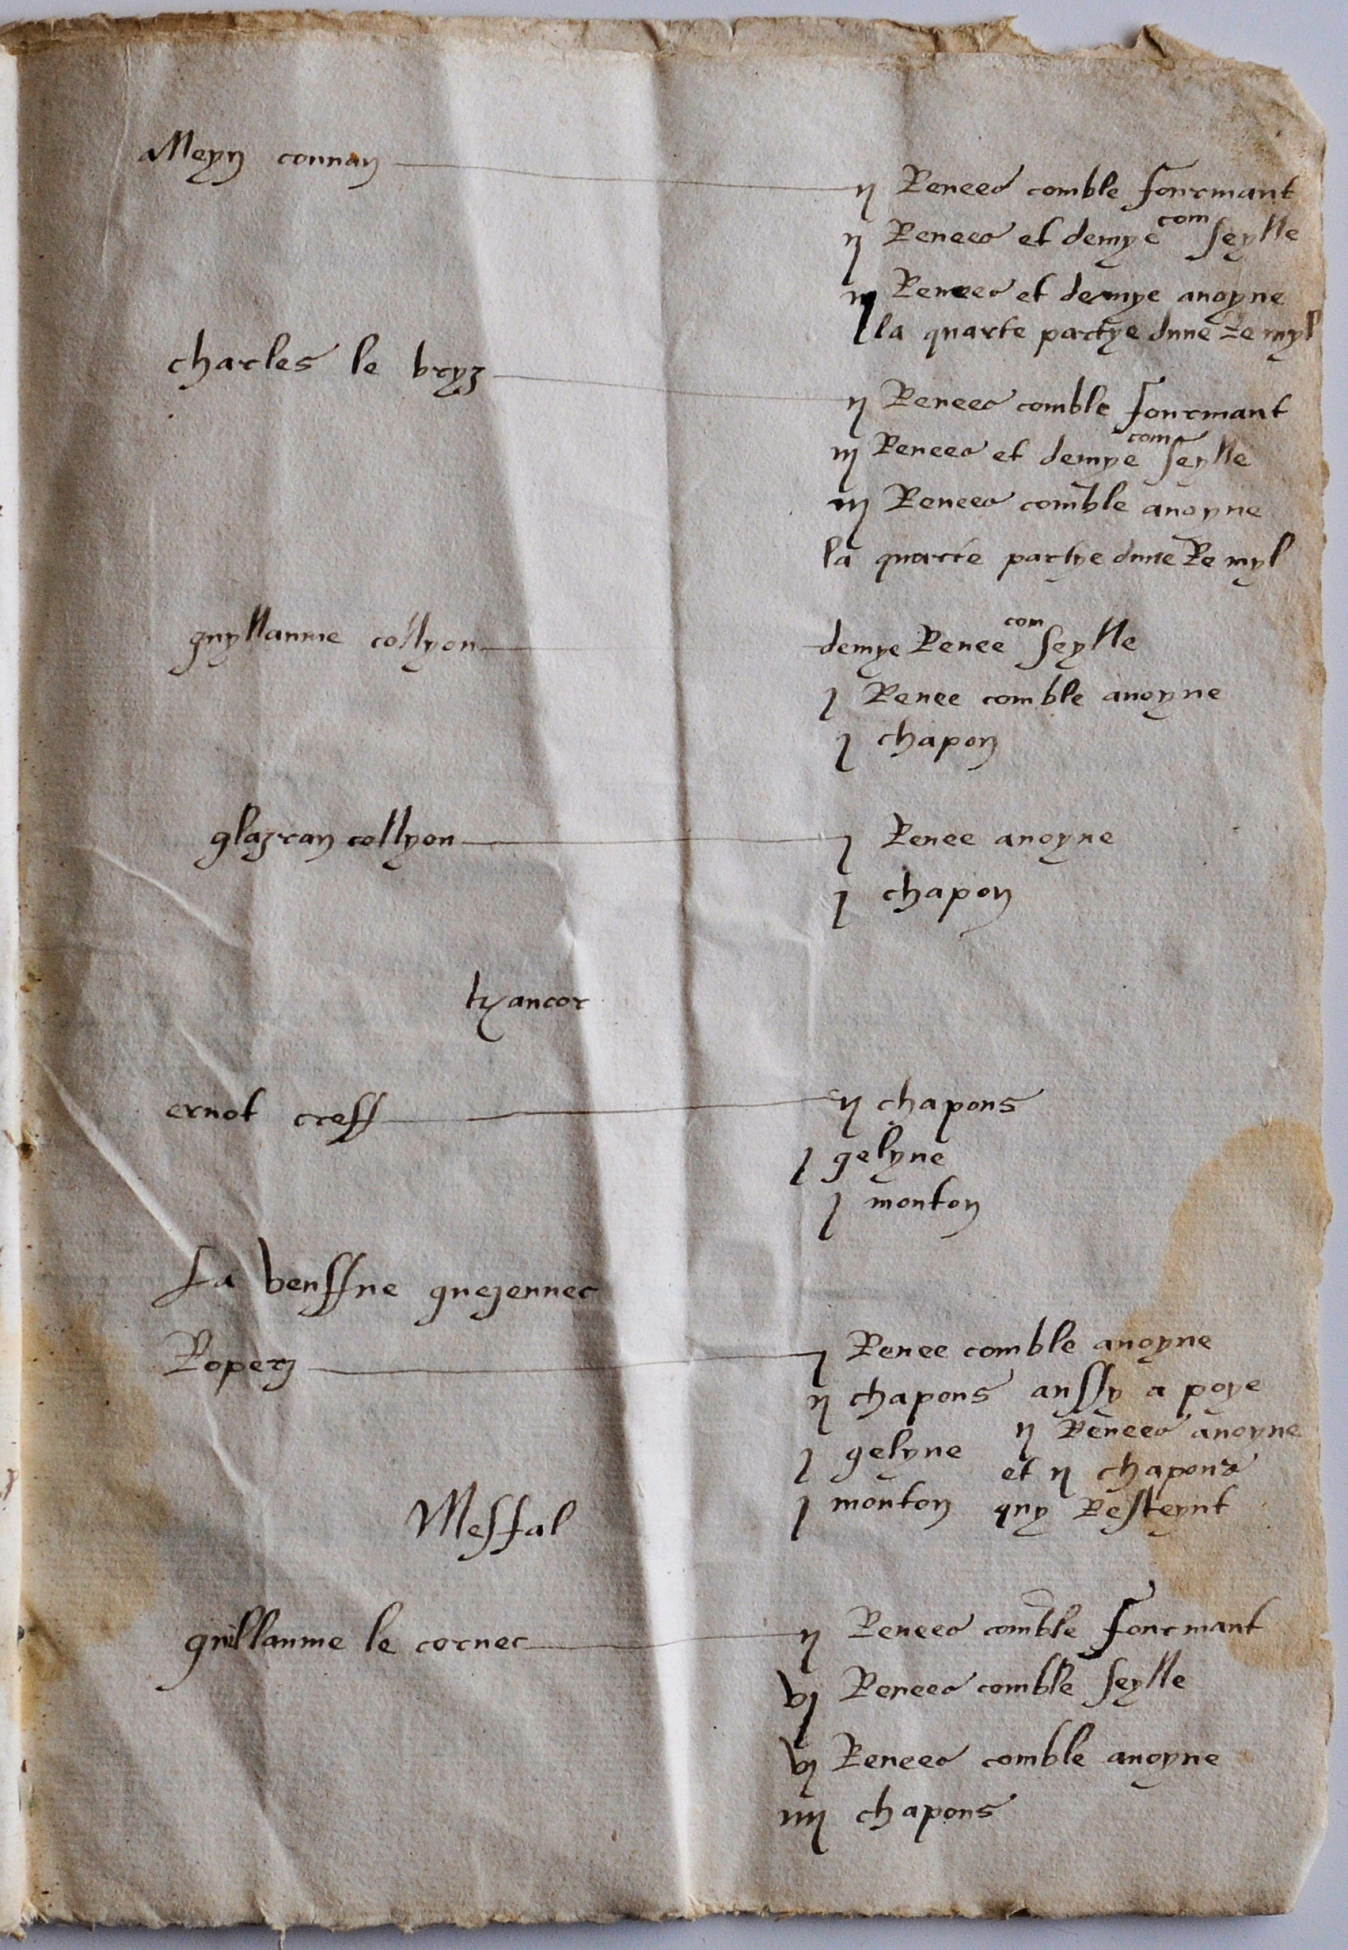 Meyn connan
ij Renees comble fourmant
ij Renees et demye com seylle
iij Renees et demye avoyne
la quarte partye dune Re myl
charles le bryz
ij Renees comble fourmant
iij Renees et demye com seylle
iij Renees comble avoyne
la quarte partye dune Re myl
guyllaume collyon
demye Renee com seylle
j Renee comble avoyne
j chapon
glazran collyon
j Renee avoyne
j chapon
kancor
ernot creff
ij chapons
j gelyne
j mouton
La veuffve guezennec
Roperz
j Renee comble avoyne
ij chapons aussy a poye
j gelyne ij Renees avoyne
et ij chapons
j mouton quy Resteynt
Messal
guillaume le cornec
ij Renees comble fourmant
vj Renees comble seylle
vj Renees comble avoyne
iiij chapons